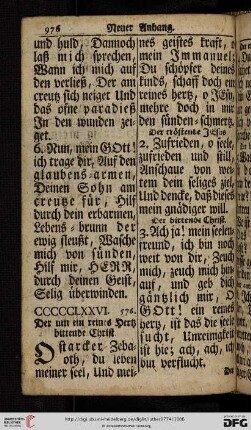 976 Neuer Anhang.
und huld, Dannoch
laß mich sprechen,
Wann ich mich auf
den verließ, Der am
creutz sich neiget Und
das ofne paradieß
In den wunden zei-
get.
6. Nun, mein GOtt!
ich trage dir, Auf den
glaubens-armen,
Deinen Sohn am
creutze für, Hilf
durch dein erbarmen,
Lebens-brunn der
ewig fleußt, Wasche
mich von sünden
Hilf mir, HERR,
durch deinen Geist,
Selig überwinden.
CCCCCLXXVI. 576.
Der um ein reines Hertz
bittende Christ
O starcker Zeba-
oth, du leben
meiner seel, Und mei-
nes geistes kraft, o
mein Immanuel;
Du schöpfer deines
kinds, schaff doch ein
reines hertz, o JEsu,
mehre doch in mir
den sünden-schmertz.
Der tröstende JEsus
2. Zufrieden, o seele,
zufrieden und still,
Anschaue von wei-
tem dein seliges ziel,
Und dencke, daß dieses
mein gnädiger will.
Der bittende Christ.
3. Ach ja! mein seelen-
freund, ich bin noch
weit von dir, Zeuch
mich, zeuch mich hin-
auf, und geb dich
gäntzlich mir, O
GOtt! ein reines
hertz, ist das die seele
sucht, Unreinigkeit
ist hie; ach, ach, ich
bin verflucht.
http://digi.ub.uni-heidelberg.de/diglit/
DFG